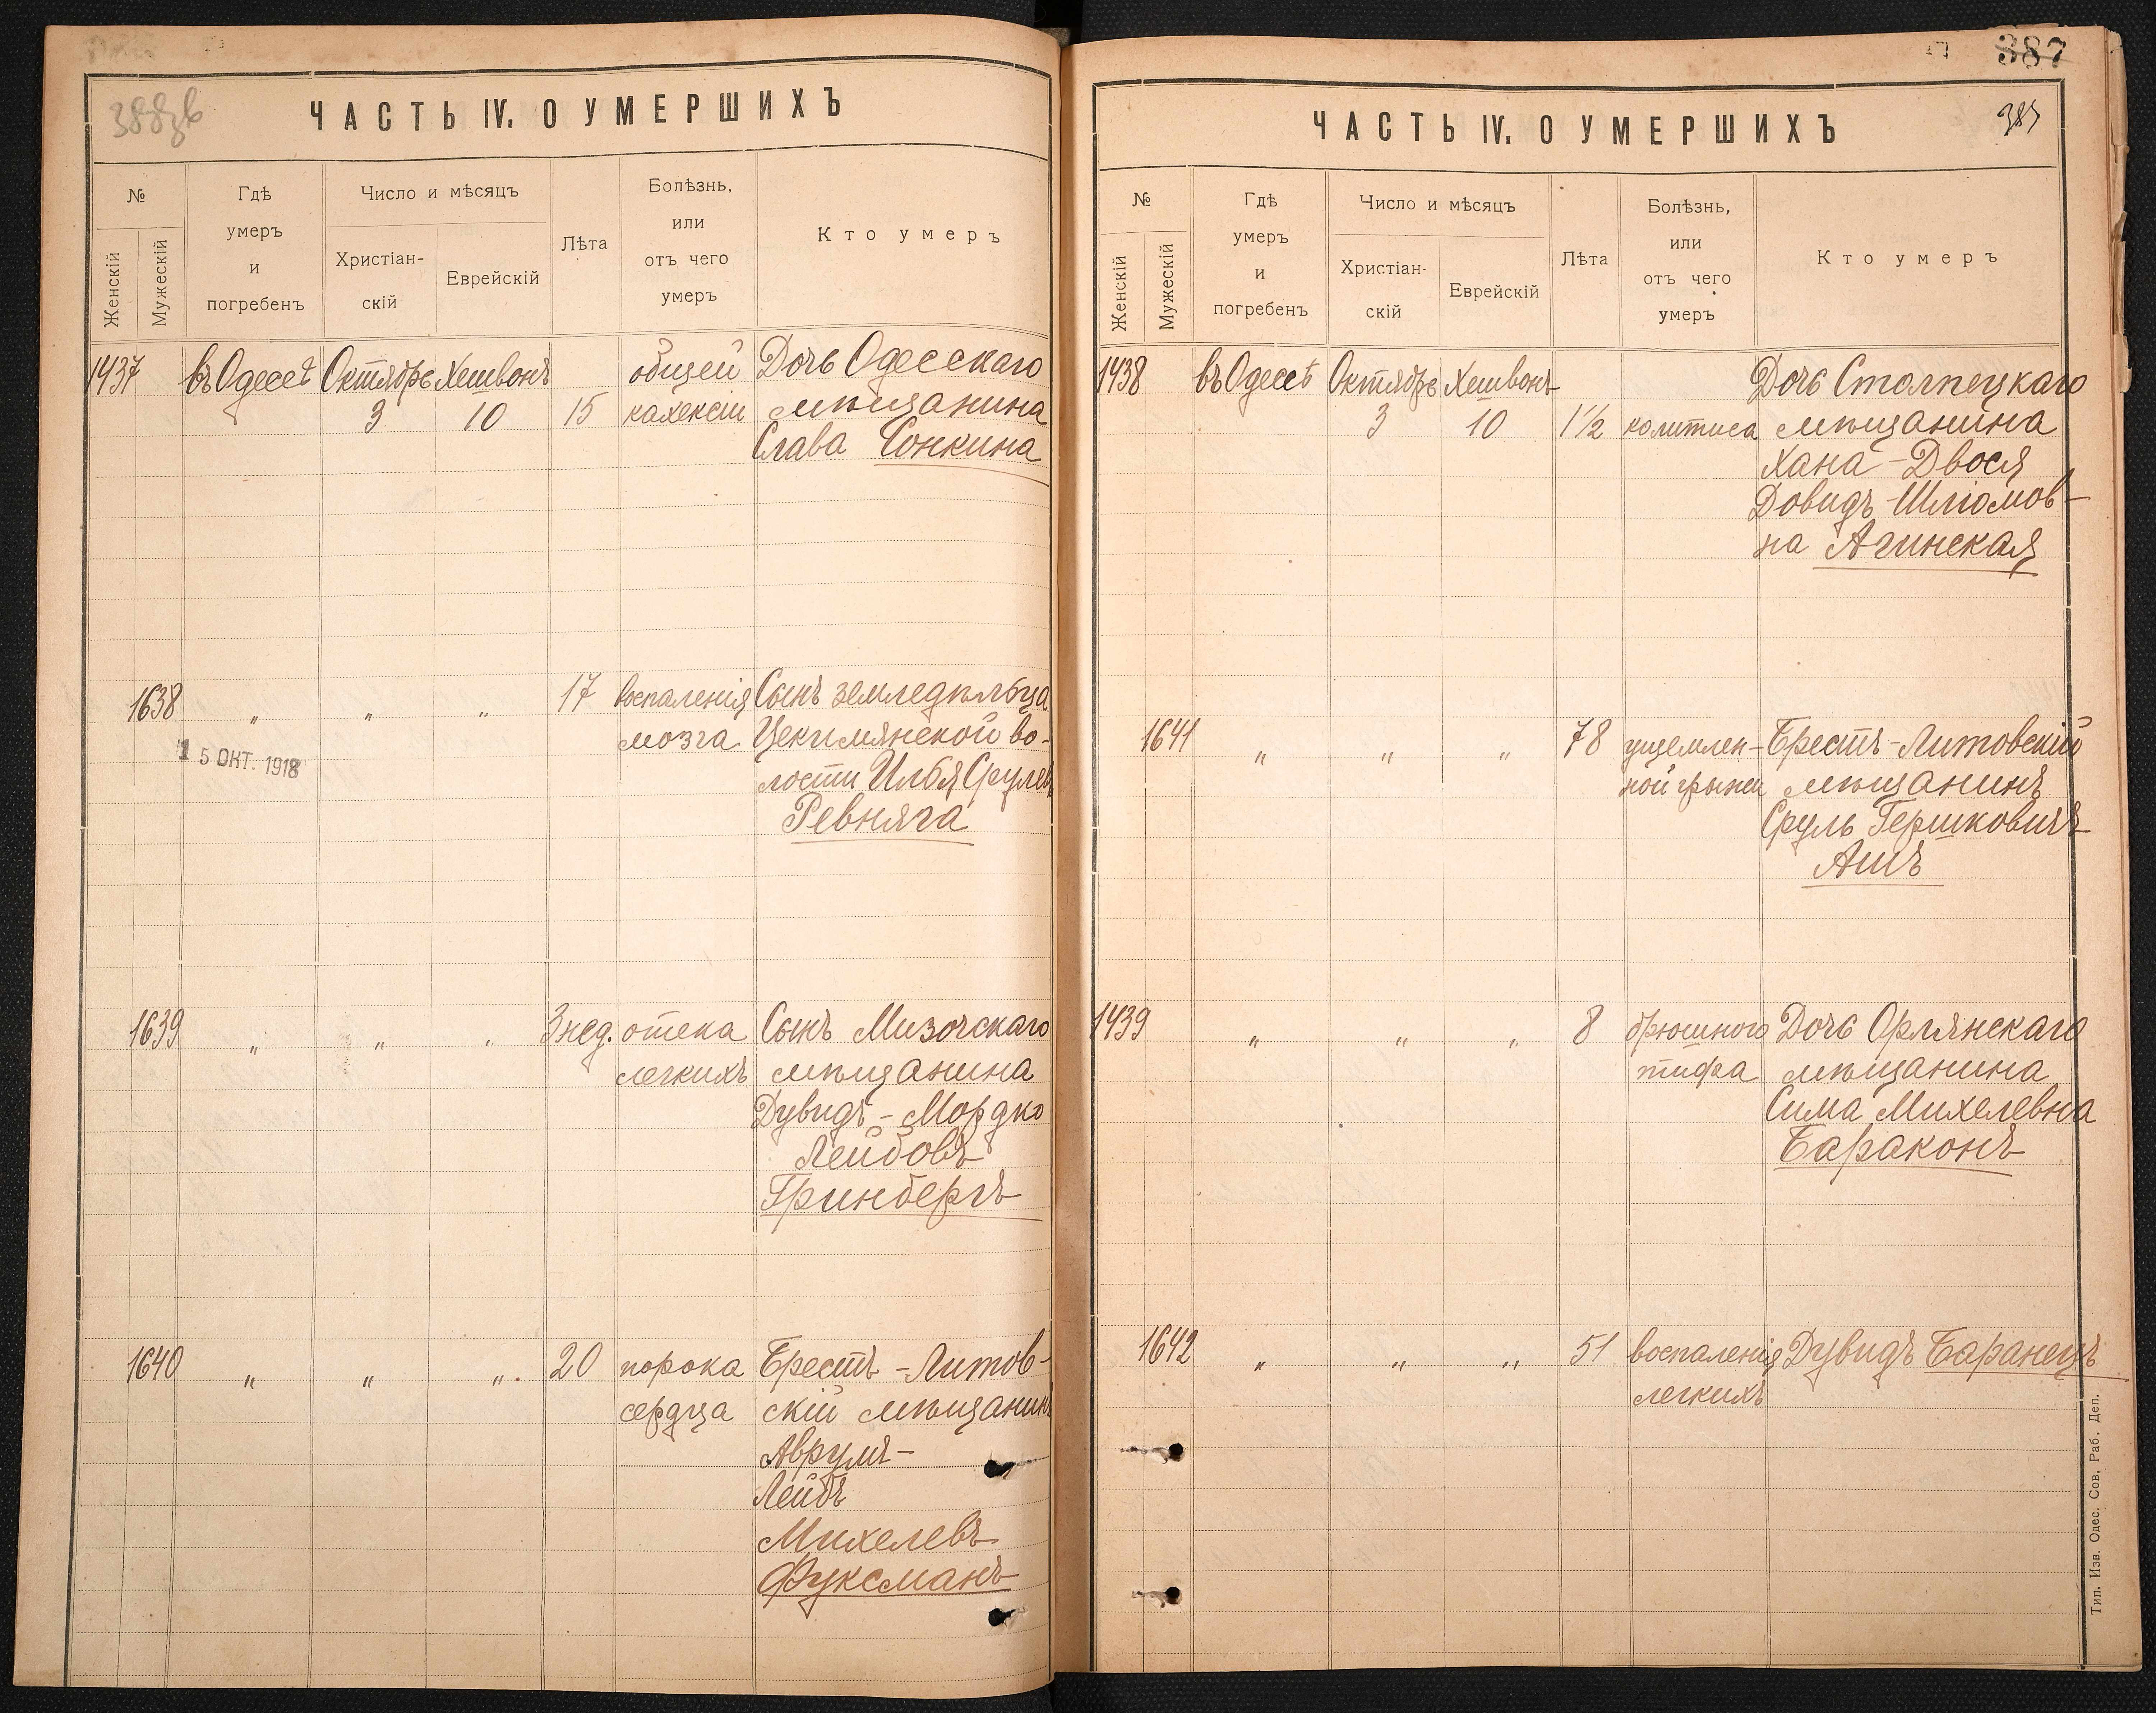 388зв
ЧАСТЬ IV. О УМЕРШИХЪ
№
Женскій
Мужескій
Гдѣ
умеръ
и
погребенъ
Число и мѣсяцъ
Христіан-
скій
Еврейскій
Лѣта
Болѣзнь,
или
отъ чего
умеръ
Кто умеръ
1437 въ Одессѣ Октябрь Хешвонъ общей Дочь Одесскаго
3 10 15 кахексіи мѣщанина
Слава Сонкина
1638 „ „ „ 17 воспаленія Сынъ земледѣльца
мозга Цекимянской во-
15 ОКТ. 1918
лости Илья Срулевъ
Ревняга
1639 „ „ „ 3 нед. отека Сынъ Мизочскаго
легкихъ мѣщанина
Дувидъ-Мордко
Лейбовъ
Гринбергъ
1640 „ „ „ 20 порока Брестъ-Литов-
сердца скій мѣщанинъ
Аврумъ-
Лейбъ
Михелевъ
Фуксманъ
387
387
ЧАСТЬ IV. О УМЕРШИХЪ
№
Женскій
Мужескій
Гдѣ
умеръ
и
погребенъ
Число и мѣсяцъ
Христіан-
скій
Еврейскій
Лѣта
Болѣзнь,
или
отъ чего
умеръ
Кто умеръ
1438 въ Одессѣ Октябрь Хешвонъ Дочь Столпецкаго
3 10 1½ колитиса мѣщанина
Хана-Двося
Довидъ-Шліомов-
на Агинская
1641 „ „ „ 78 ущемлен- Брестъ-Литовскій
ной грыжи мѣщанинъ
Сруль Гершковичъ
Ашъ
1439 „ „ „ 8 брюшного Дочь Орлянскаго
тифа мѣщанина
Сима Михелевна
Бараконъ
1642 „ „ „ 51 воспаленія Дувидъ Баранецъ
легкихъ
Тип. Изв. Одес. Сов. Раб. Деп.